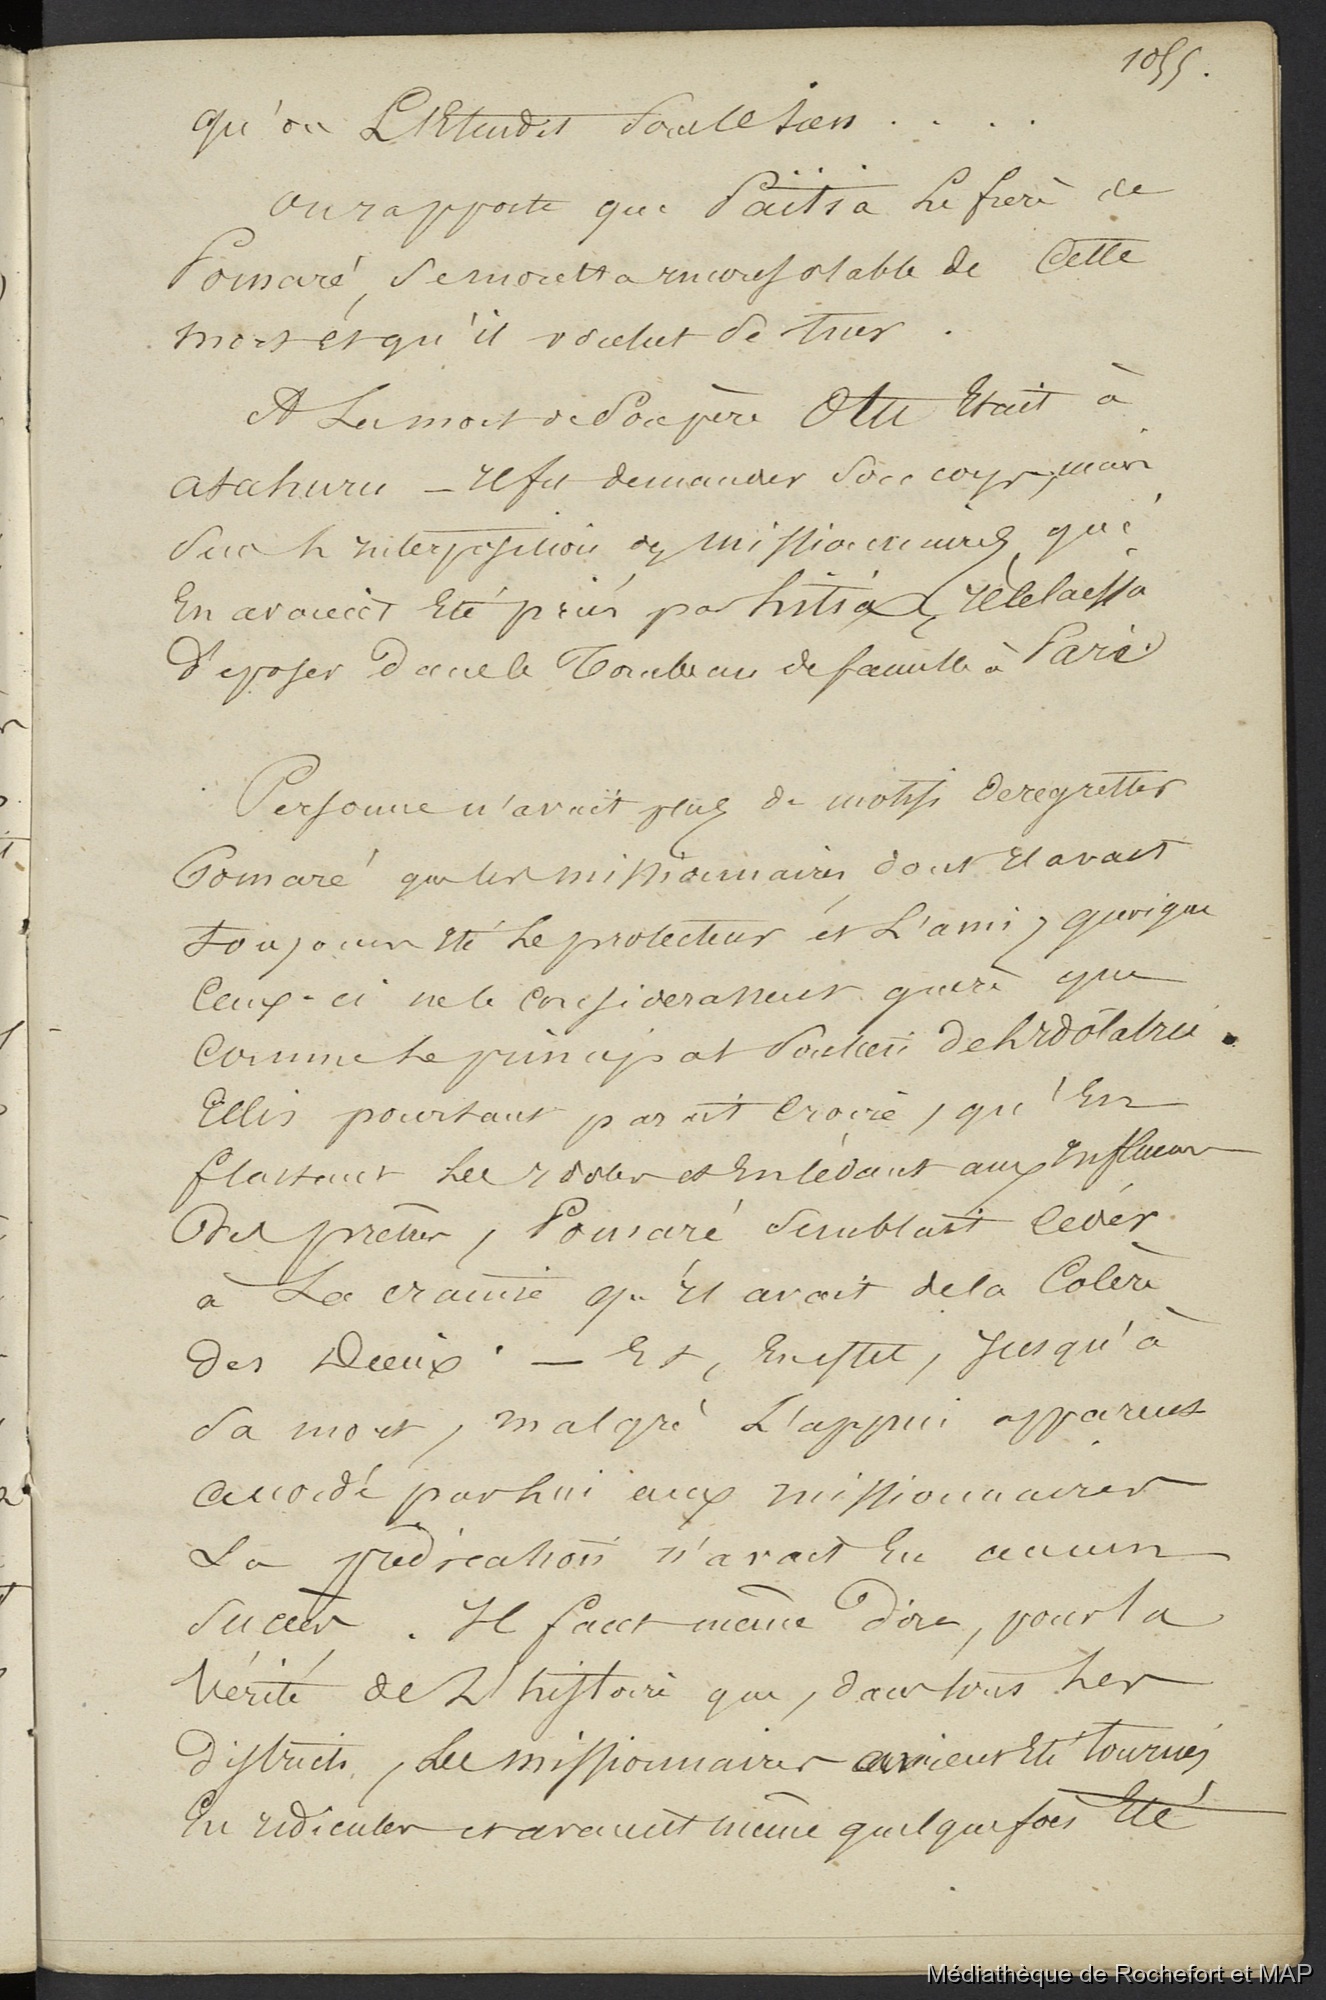 1055.
qu'on L'Etendit sur le sien . . . .
on rapporte que Païtia le frère de
Pomaré, se montra inconsolable de Cette
mort et qu'il voulut se tuer.
A La mort de Son père Otu Etait à
atahuru – Il fit demander son corps, mais
sur l'interposition des missionnaires, qui
En avaient Eté priés par hitia, il le laissa
Déposer dans le Tombeau de famille à Paré.
Personne n'avait plus de motifs de regretter
Pomaré que les missionnaires, dont il avait
toujours été le protecteur et L'ami, quoique
Ceux-ci ne le considerassent guère que
Comme le principal soutien de l'idôlatrie.
Ellis pourtant parait Croire, qu'En
flattant les idoles et En cédant aux Influences
Des prêtres, Pomaré semblait céder
à La crainte qu'il avait de la Colère
des Dieux. — Et, En effet, jusqu'à
sa mort, malgré L'appui apparent
accordé par lui aux missionnaires
La prédication n'avait Eu aucun
succès. Il faut même Dire, pour la
Vérité de L'histoire que, dans tous les
districts, les missionnaires avaient Eté tournés
En ridicules et avaient même quelquefois Eté
Médiathèque de Rochefort et MAP